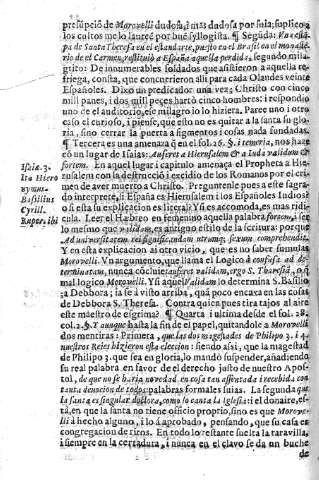 presupuesto de Morovelli dudosa, i mas dudosa por sula; suplico a
los cultos me lo laureē por buē syllogista. ¶ Segūda:
pa de Santa Theresa en el estandarte, puesto en el Brasil en el monaste-
rio de el Carmen, restituió a España aquella perdida; segundo mila-
gtito: De innumerables soldados que asistieron a aquella re-
friega, consta, que concurrieron alli para cada Olandes veinte
Españoles. Dixo un predicador una vez; Christo con cinco
mil panes, i dos mil peçes hartò cinco hombres: i respondió
uno de el auditorio, ese milagro io lo hiziera. Pare uno i otro
caso el curioso, i piense, que esto no es quitar a la santa su glo-
ria, sino cerrar la puerta a figmentos i cosas nada fundadas.
¶ Tercera es una amenaça q̄ en el fol. 26. §. i temeria, nos haze
cō un lugar de Isaias: Auferet a Hierusalem & a Iuda validum &
fortem. En aquel lugar i capitulo amenaça el Propheta a Hie-
rusalem con la destrucció i excidio de los Romanos por el cri-
men de aver muerto a Christo. Preguntenle pues a este sagra-
do interprete, si España es Hierusalem i los Españoles Iudios?
o si esta su explicacion es literal? Y si es accomoda, es una ridi-
cula. Leer el Habreo en femenino aquella palabra foram, i ser
lo mesmo que validam, es antiguo estilo de la scritura: porque
Ad universitatem rei significandam utrumq; sexum comprehendit.
Y en esta explicacion al otro vicio, que es no saber sumulas
Morovelli. Un argumento, que llama el Logico à confusa ad de-
terminatam, nunca cōcluie: auferet validam, ergo S. Theresiā, o q̄
mal logico Morovelli. Ysi aquel Validam lo determina S. Basilio
a Debbora; ia se à visto arriba, quā poco encaxa en las cosas
de Debbora S. Theresa. Contra quien pues tira tajos al aire
este maestro de esgrima? ¶ Quarta i ultima desde el fol. 28.
col. 2. §. Y aunque hasta la fin de el papel, quitandole a Morovelli
dos mentiras: Primera, que las dos magestades de Philipo 3. i 4
nuestros Reies hizieron esta eleccion: siendo asi, que la magestad
de Philipo 3. que sea en gloria, lo mandó suspender, añadiendo
su real palabra en favor de el derecho justo de nuestro Apos-
tol, de que no se haria novedad, en cosa tan assentada i recebida con
tanta devocion de todos: palabras formales suias. La segunda que
la santa es singular doctora, como lo canta la Iglesia: i el donaire, es-
tà, en que la santa no tiene officio proprio, sino es que Morove-
lli à hecho alguno, i lo à aprobado, pensando, que su casa es
congregacion de ritos. En todo lo restante suelta la taravilla,
i siempre en la cerradura, i nunca en el clavo se da un buche
de
Isaiæ. 3.
Ita Hiero
nymus.
Basilius
Cyrill.
Ruper. ibi